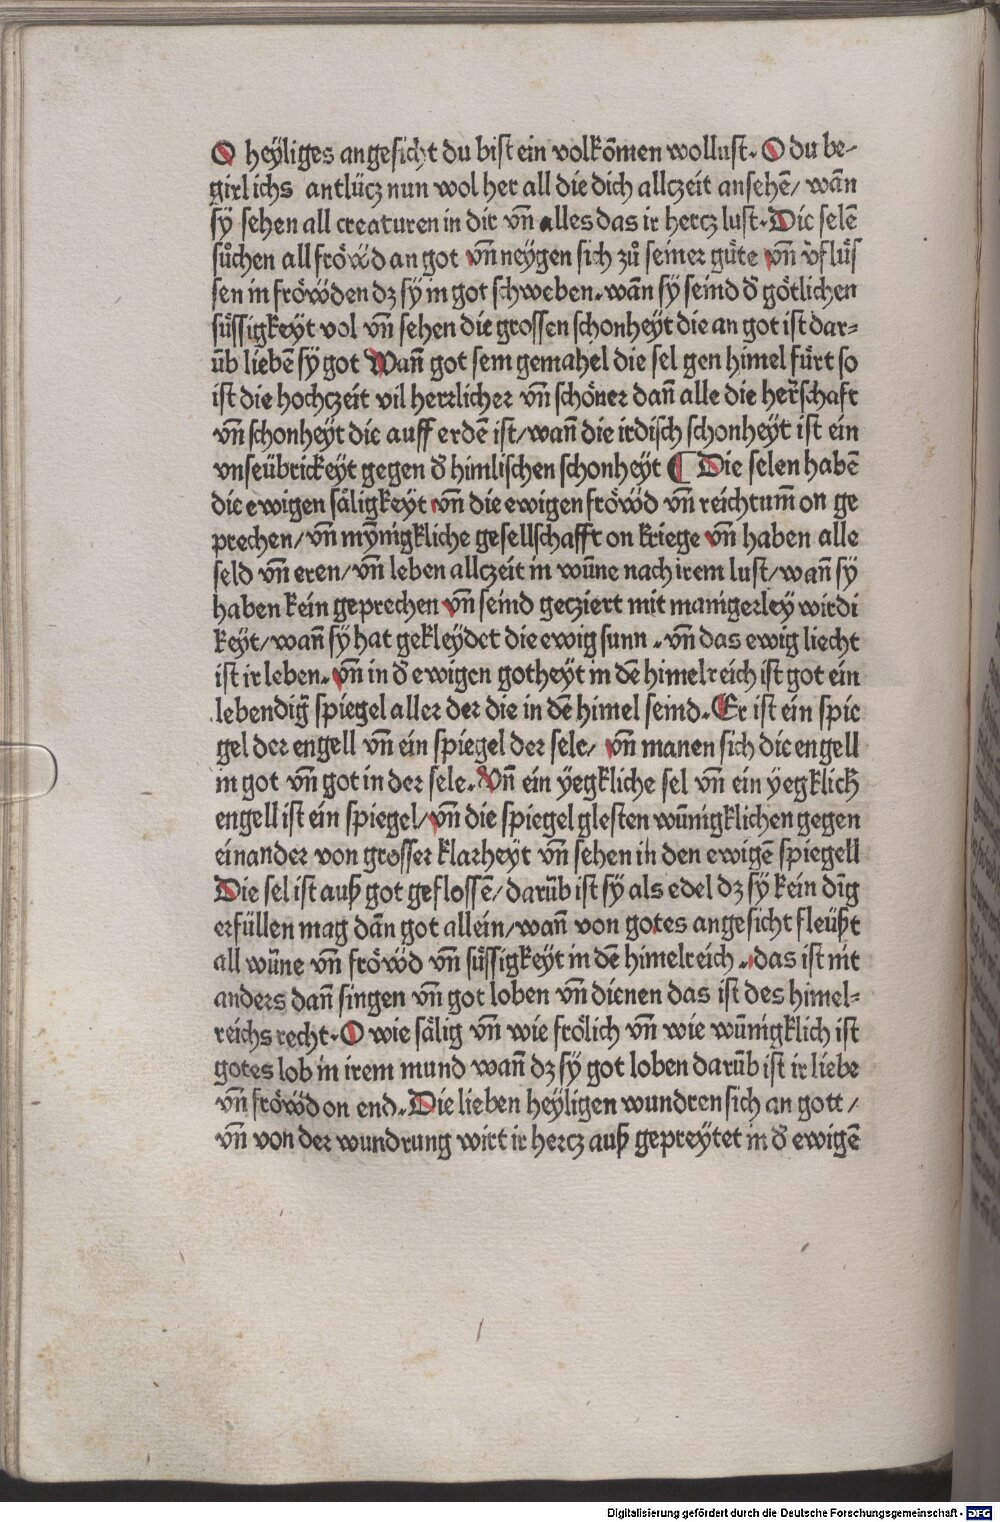 O heÿliges angesicht du bist ein volkōmen wollust. O du be-
girlichs antlücz nun wol her all die dich allczeit ansehē/ wān
sÿ sehen all creaturen in dir vn̄ alles das ir hercz lust. Die selē
sůchen all fröẅd an got vn̄ neygen sich zů seiner güte vn̄ v̉flüs
sen in fröẅden dz sÿ in got schweben. wān sÿ seind d̕ götlichen
süssigkeÿt vol vn̄ sehen die grossen schonheÿt die an got ist dar-
ūb liebē sÿ got Wann̄ got sein gemahel die sel gen himel fürt so
ist die hochczeit vil herrlicher vn̄ schöner dan̄ alle die her̄schaft
vn̄ schonheÿt die auff erdē ist/ wan̄ die irdisch schonheÿt ist ein
vnseübrickeÿt gegen d̕ himlischen schonheÿt ¶ Die selen habē
die ewigen säligkeÿt vn̄ die ewigen fröẅd vn̄ reichtum̄ on ge
prechen/ vn̄ mȳnigkliche gesellschafft on kriege vn̄ haben alle
seld vn̄ eren/ vn̄ leben allczeit in wūne nach irem lust/ wan̄ sÿ
haben kein geprechen vn̄ seind gecziert mit manigerleÿ wirdi
keÿt/ wan̄ sÿ hat gekleÿdet die ewig sunn . vn̄ das ewig liecht
ist ir leben. vn̄ in d̕ ewigen gotheÿt in dē himelreich ist got ein
lebendiḡ spiegel aller der die in dē himel seind. Er ist ein spie
gel der engell vn̄ ein spiegel der sele/ vn̄ manen sich die engell
in got vn̄ got in der sele. Vn̄ ein ÿegkliche sel vn̄ ein ÿegklich̄
engell ist ein spiegel/ vn̄ die spiegel glesten wūnigklichen gegen
einander von grosser klarheyt vn̄ sehen in den ewigē spiegell
Die sel ist auß got geflossē/ darūb ist sÿ als edel dz sÿ kein dīg
erfüllen mag dān got allein/ wan̄ von gotes angesicht fleüßt
all wūne vn̄ fröẅd vn̄ süssigkeÿt in dē himelreich . das ist nit
anders dan̄ singen vn̄ got loben vn̄ dienen das ist des himel-
reichs recht. O wie sälig vn̄ wie frölich vn̄ wie wūnigklich ist
gotes lob in irem mund wan̄ dz sÿ got loben darūb ist ir liebe
vn̄ fröẅd on end. Die lieben heÿligen wundren sich an gott /
vn̄ von der wundrung wirt ir hercz auß gepreÿtet in d̕ ewigē
Digitalisierung gefördert durch die Deutsche Forschungsgemeinschaft - DFG